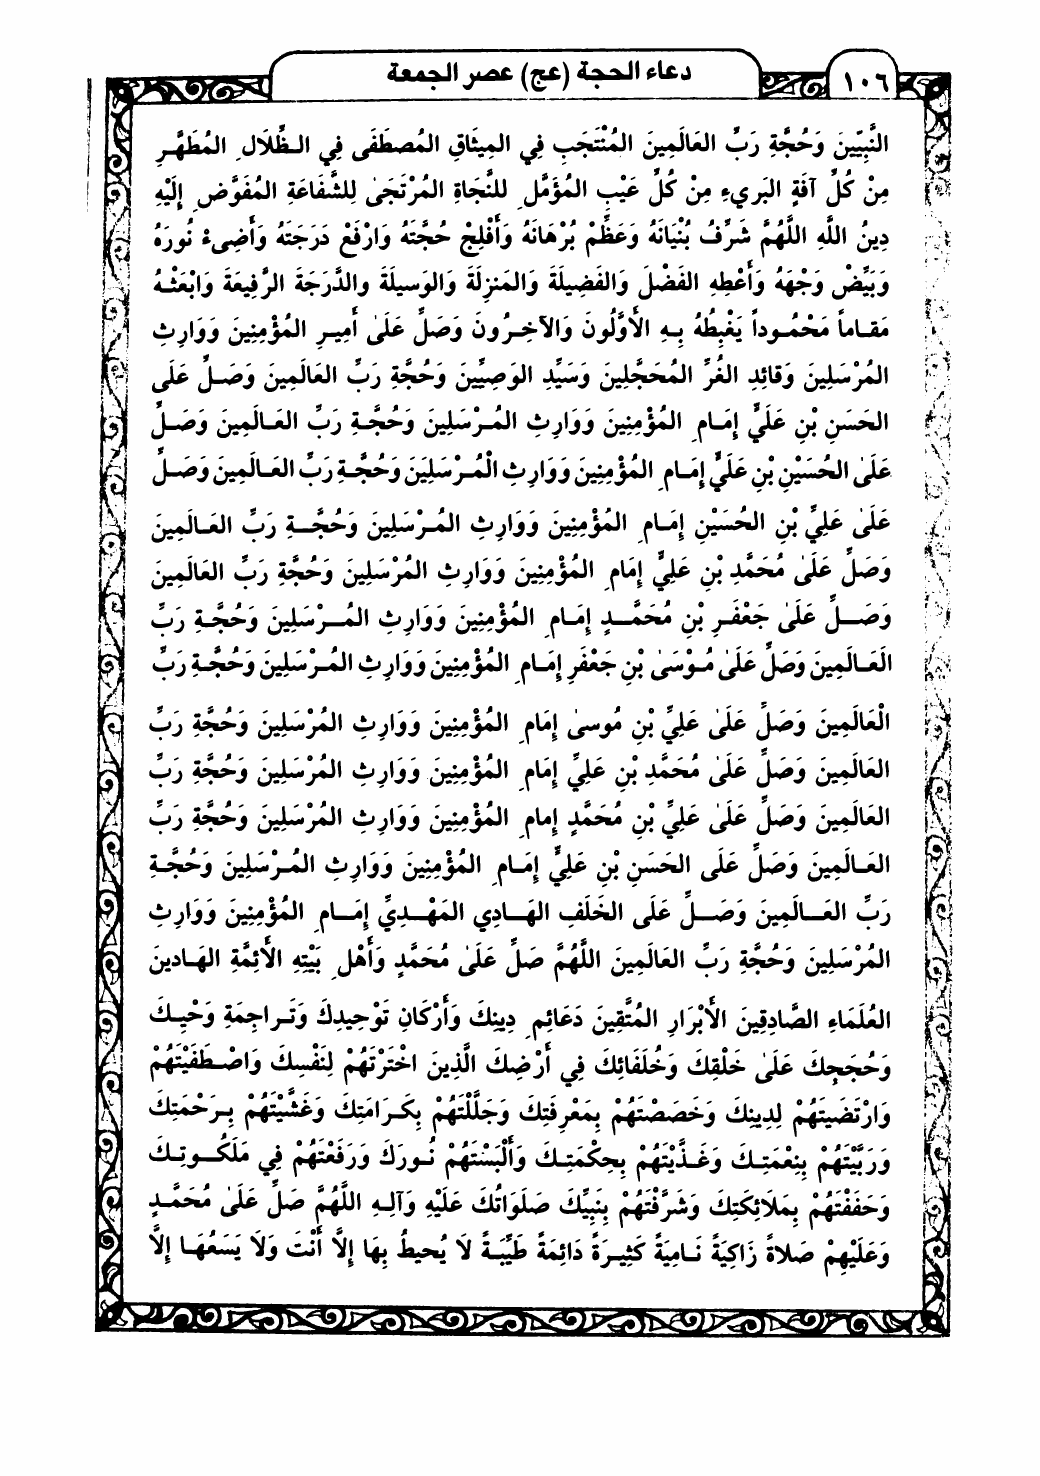 ١٠٦
دعاء الحجة (عج) عصر الجمعة
النَّبِيّينَ وَحُجَّةِ رَبِّ العَالَمِينَ المُنْتَجَبِ فِي المِيثَاقِ المُصطَفَى فِي الظِّلَالِ المُطَهَّرِ
مِنْ كُلِّ آفَةٍ البَرِيءِ مِنْ كُلِّ عَيْبٍ المُؤَمَّلِ لِلنَّجَاةِ المُرْتَجَىٰ لِلشَّفَاعَةِ المُفَوَّضِ إِلَيْهِ
دِينُ اللَّهِ اللَّهُمَّ شَرِّفُ بُنْيَانَهُ وَعَظِّمْ بُرْهَانَهُ وَأَفْلِجْ حُجَّتَهُ وَارْفَعْ دَرَجَتَهُ وَأَضِىءْ نُورَهُ
وَبَيِّضْ وَجْهَهُ وَأَعْطِهِ الفَضْلَ وَالفَضِيلَةَ وَالمَنزِلَةَ وَالوَسيلَةَ والدَّرَجَةَ الرَّفِيعَةَ وَابْعَثْهُ
مَقاماً مَحْمُوداً يَغْبِطُهُ بِهِ الأَوَّلُونَ وَالآخِرُونَ وَصَلِّ عَلَىٰ أَمِيرِ المُؤْمِنِينَ وَوَارِثِ
المُرْسَلِينَ وَقَائِدِ الغُرِّ المُحَجَّلِينَ وَسَيِّدِ الوَصِيِّينَ وَحُجَّةِ رَبِّ العَالَمِينَ وَصَلِّ عَلَى
الحَسَنِ بْنِ عَلَيٍّ إِمَامِ المُؤْمِنِينَ وَوَارِثِ المُرْسَلِينَ وَحُجَّةِ رَبِّ العَالَمِينَ وَصَلِّ
عَلَىٰ الحُسَيْنِ بْنِ عَلَيٍّ إِمَامِ المُؤْمِنِينَ وَوَارِثِ الْمُرْسَلِيَنَ وَحُجَّةِ رَبِّ العَالَمِينَ وَصَلِّ
عَلَىٰ عَلِيِّ بْنِ الحُسَيْنِ إِمَامِ المُؤْمِنِينَ وَوَارِثِ المُرْسَلِينَ وَحُجَّةِ رَبِّ العَالَمِينَ
وَصَلِّ عَلَىٰ مُحَمَّدِ بْنِ عَلِيٍّ إِمَامِ المُؤْمِنِينَ وَوَارِثِ المُرْسَلِينَ وَحُجَّةِ رَبِّ العَالَمِينَ
وَصَلِّ عَلَىٰ جَعْفَرِ بْنِ مُحَمَّدٍ إِمَامِ المُؤْمِنِينَ وَوَارِثِ المُرْسَلِينَ وَحُجَّةِ رَبِّ
الَعَالَمِينَ وَصَلِّ عَلَىٰ مُوْسَىٰ بْنِ جَعْفَرٍ إِمَامِ المُؤْمِنِينَ وَوَارِثِ المُرْسَلِينَ وَحُجَّةِ رَبِّ
الْعَالَمِينَ وَصَلِّ عَلَىٰ عَلِيِّ بْنِ مُوسىٰ إِمَامِ المُؤْمِنِينَ وَوَارِثِ المُرْسَلِينَ وَحُجَّةِ رَبِّ
العَالَمِينَ وَصَلِّ عَلَىٰ مُحَمَّدِ بْنِ عَلِيِّ إِمَامِ المُؤْمِنِينَ وَوَارِثِ المُرْسَلِينَ وَحُجَّةِ رَبِّ
العَالَمِينَ وَصَلِّ عَلَىٰ عَلِيِّ بْنِ مُحَمَّدٍ إمام المُؤْمِنِينَ وَوَارِثِ المُرْسَلِينَ وَحُجَّةِ رَبِّ
العَالَمِينَ وَصَلِّ عَلَى الحَسَنِ بْنِ عَلِيٍّ إِمَامِ المُؤْمِنِينَ وَوَارِثِ المُرْسَلِينَ وَحُجَّةِ
رَبِّ العَالَمِينَ وَصَلِّ عَلَى الخَلَفِ الهَادِي المَهْدِيِّ إِمَامِ المُؤْمِنِينَ وَوَارِثِ
المُرْسَلِينَ وَحُجَّةِ رَبِّ العَالَمِينَ اللَّهُمَّ صَلِّ عَلَىٰ مُحَمَّدٍ وَأَهْلِ بَيْتِهِ الأَئِمَّةِ الهَادين
العُلَمَاءِ الصَّادِقِينَ الأَبْرَارِ المُتَّقِينَ دَعَائِمِ دِينِكَ وَأَرْكَانِ تَوْحِيدِكَ وَتَراجِمَةِ وَحْيِكَ
وَحُجَجِكَ عَلَىٰ خَلْقِكَ وَخُلَفَائِكَ فِي أَرْضِكَ الَّذِينَ اخْتَرْتَهُمْ لِنَفْسِكَ وَاصْطَفَيْتَهُمْ
وَارْتَضَيتَهُمْ لِدِينِكَ وَخَصَصْتَهُمْ بِمَعْرِفَتِكَ وَجَلَّلْتَهُمْ بِكَرَامَتِكَ وَغَشَّيْتَهُمْ بِرَحْمَتِكَ
وَرَبَّيْتَهُمْ بِنِعْمَتِكَ وَغَذَّيْتَهُمْ بِحِكْمَتِكَ وَأَلْبَسْتَهُمْ نُورَكَ وَرَفَعْتَهُمْ فِي مَلَكُوتِكَ
وَحَفَفْتَهُمْ بِمَلَائِكَتِكَ وَشَرَّفْتَهُمْ بِنَبِيِّكَ صَلَوَاتُكَ عَلَيْهِ وَآلِهِ اللَّهُمَّ صَلِّ عَلَىٰ مُحَمَّدٍ
وَعَلَيْهِمْ صَلاةً زَاكِيَةً نَامِيَةً كَثِيرَةً دَائِمَةً طَيِّبَةً لَا يُحيطُ بِهَا إِلَّا أَنْتَ وَلَا يَسَعُهَا إِلَّا